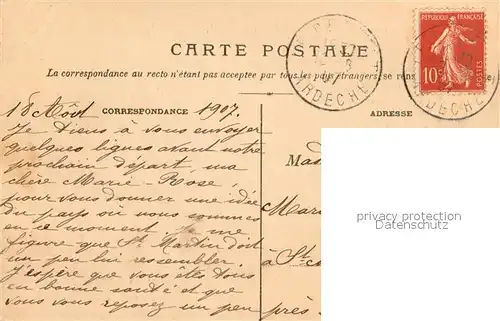 RÉPUBLIQUE FRANÇAISE
10c
POSTES
ARDECHE
ARDECHE
CARTE POSTALE
La correspondance au recto n'étant pas acceptée par tous les pays étrangers, se rens
18 Août CORRESPONDANCE 1907.
ADRESSE
Je tiens à vous envoyer
quelques lignes avant notre
prochain départ, ma
chère Marie-Rose,
pour vous donner une idée
du pays où nous sommes
en ce moment. Je me
figure que St Martin doit
un peu lui ressembler.
J'espère que vous êtes tous
en bonne santé et que
vous vous reposez un peu
Mari
à St
près
privacy protection
Datenschutz